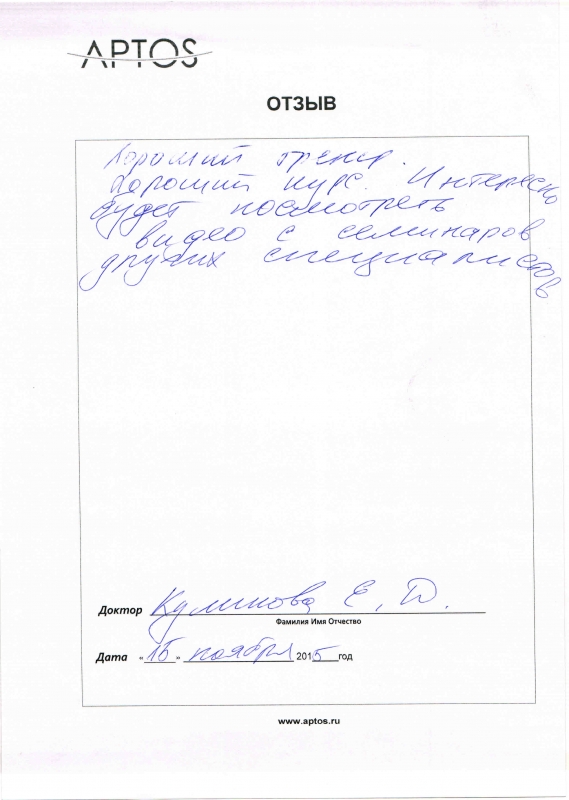 APTOS
ОТЗЫВ
Хороший тренер.
Хороший курс. Интересно
будет посмотреть
видео с семинаров
других специалистов
Доктор Куликова Е. Ю.
Фамилия Имя Отчество
Дата «15» ноября 2015 год
www.aptos.ru